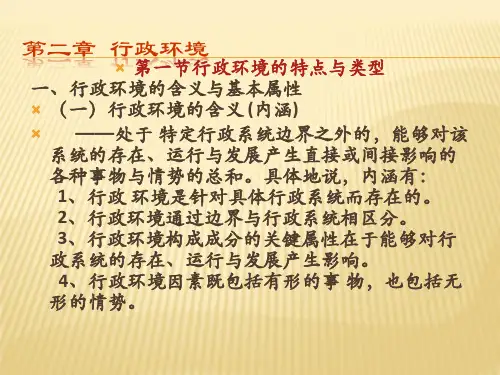 第二章 行政环境
第一节行政环境的特点与类型
一、行政环境的含义与基本属性
（一）行政环境的含义(内涵)
——处于 特定行政系统边界之外的，能够对该
系统的存在、运行与发展产生直接或间接影响的
各种事物与情势的总和。具体地说，内涵有：
1、行政 环境是针对具体行政系统而存在的。
2、行政环境通过边界与行政系统相区分。
3、行政环境构成成分的关键属性在于能够对行
政系统的存在、运行与发展产生影响。
4、行政环境因素既包括有形的事 物，也包括无
形的情势。